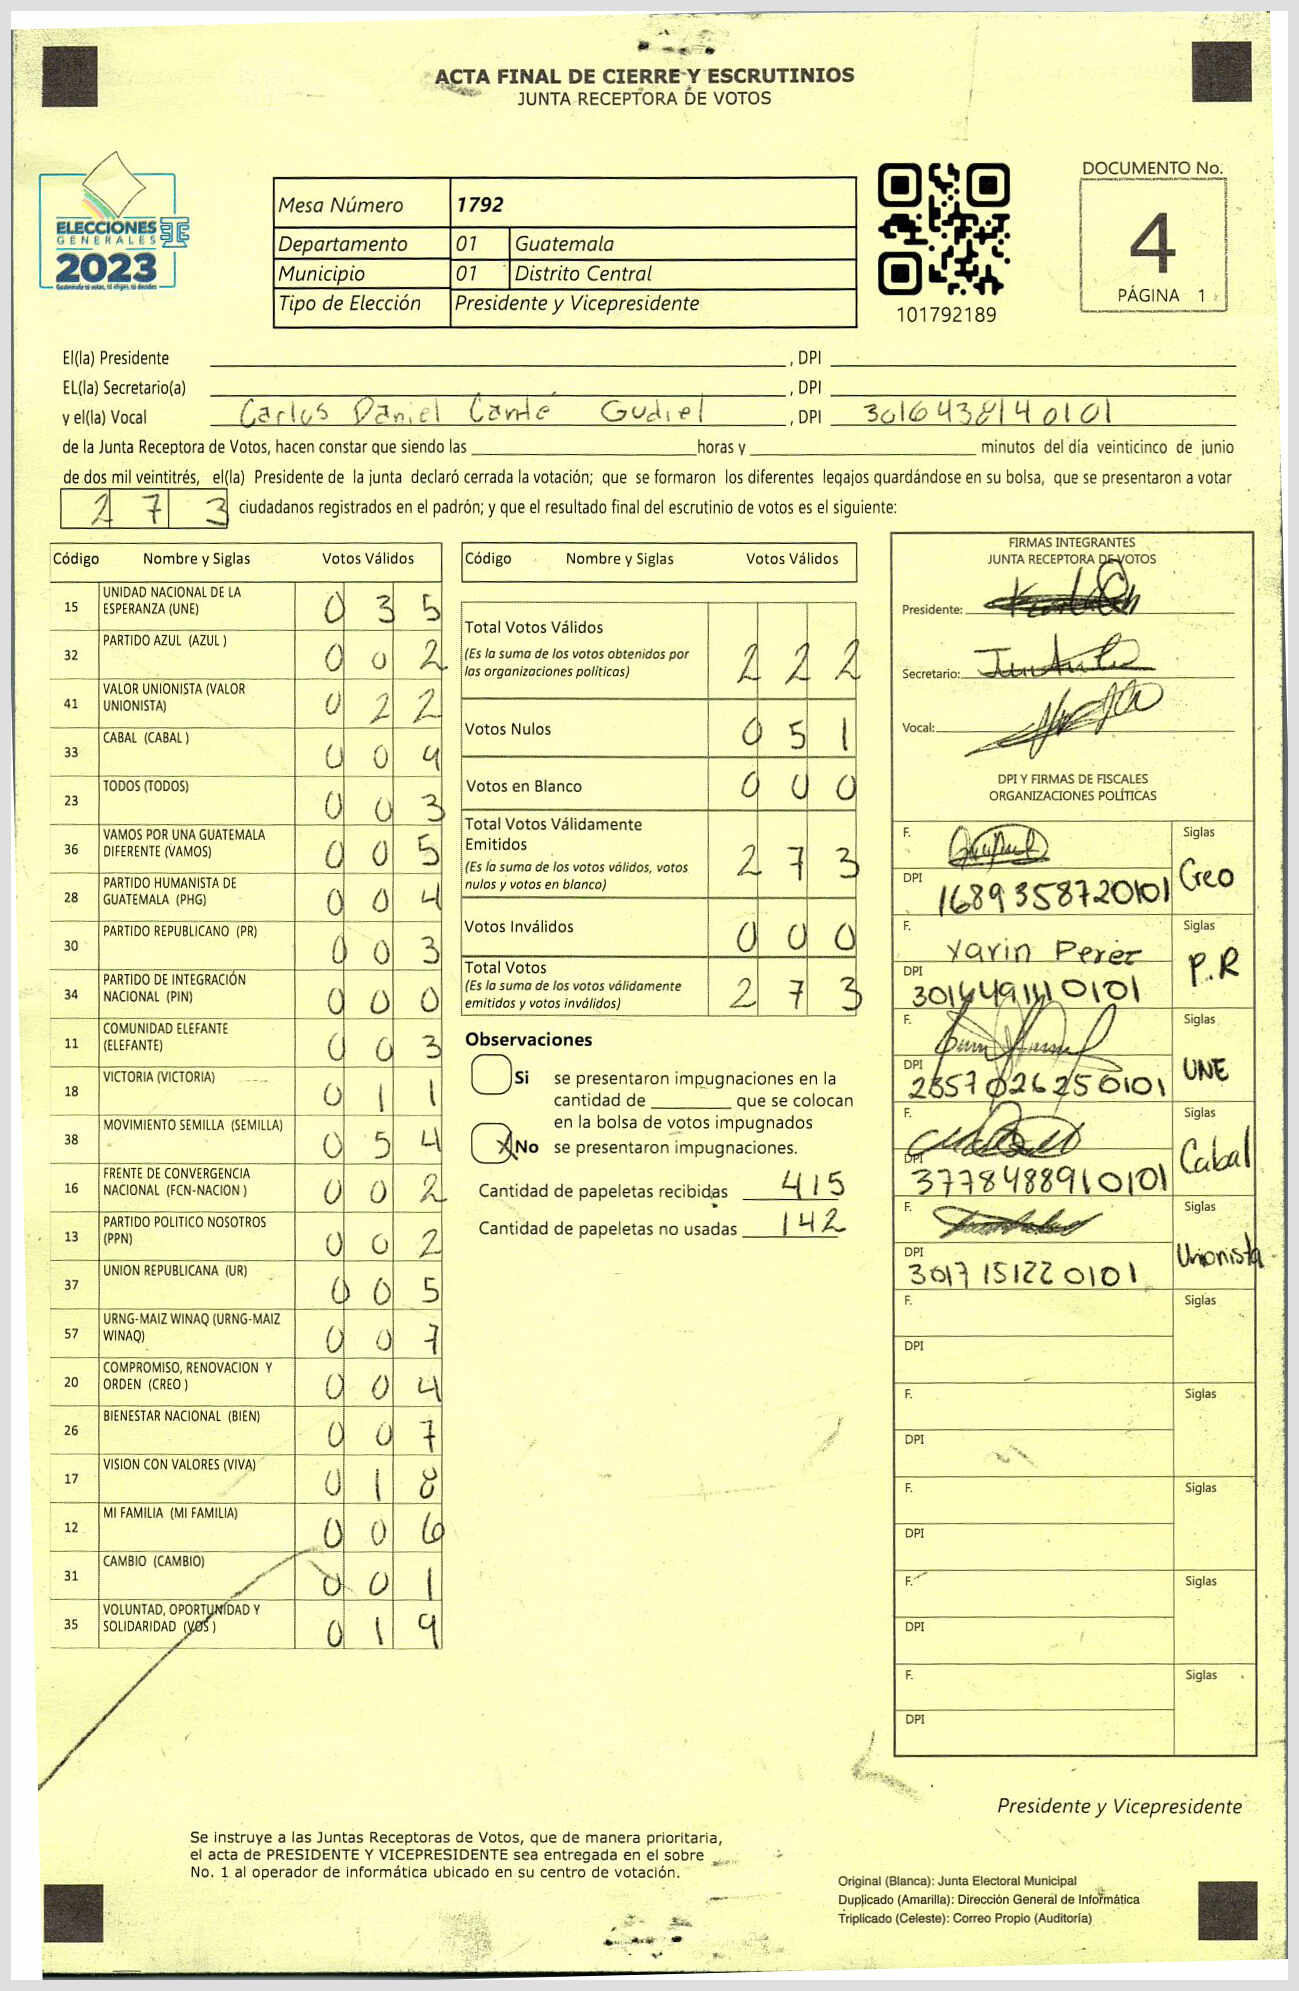 ACTA FINAL DE CIERRE Y ESCRUTINIOS
JUNTA RECEPTORA DE VOTOS
ELECCIONES
GENERALES
2023
Guatemala tú votas, tú eliges, tú decides
Mesa Número 1792
Departamento 01 Guatemala
Municipio 01 Distrito Central
Tipo de Elección Presidente y Vicepresidente
101792189
DOCUMENTO No.
4
PÁGINA 1
El(la) Presidente , DPI
EL(la) Secretario(a) , DPI
y el(la) Vocal Carlos Daniel Canté Gudiel , DPI 3016438140101
de la Junta Receptora de Votos, hacen constar que siendo las horas y minutos del día veinticinco de junio
de dos mil veintitrés, el(la) Presidente de la junta declaró cerrada la votación; que se formaron los diferentes legajos guardándose en su bolsa, que se presentaron a votar
273 ciudadanos registrados en el padrón; y que el resultado final del escrutinio de votos es el siguiente:
Código Nombre y Siglas Votos Válidos
15 UNIDAD NACIONAL DE LA ESPERANZA (UNE) 0 3 5
32 PARTIDO AZUL (AZUL ) 0 0 2
41 VALOR UNIONISTA (VALOR UNIONISTA) 0 2 2
33 CABAL (CABAL ) 0 0 9
23 TODOS (TODOS) 0 0 3
36 VAMOS POR UNA GUATEMALA DIFERENTE (VAMOS) 0 0 5
28 PARTIDO HUMANISTA DE GUATEMALA (PHG) 0 0 4
30 PARTIDO REPUBLICANO (PR) 0 0 3
34 PARTIDO DE INTEGRACIÓN NACIONAL (PIN) 0 0 0
11 COMUNIDAD ELEFANTE (ELEFANTE) 0 0 3
18 VICTORIA (VICTORIA) 0 1 1
38 MOVIMIENTO SEMILLA (SEMILLA) 0 5 4
16 FRENTE DE CONVERGENCIA NACIONAL (FCN-NACION ) 0 0 2
13 PARTIDO POLITICO NOSOTROS (PPN) 0 0 2
37 UNION REPUBLICANA (UR) 0 0 5
57 URNG-MAIZ WINAQ (URNG-MAIZ WINAQ) 0 0 7
20 COMPROMISO, RENOVACION Y ORDEN (CREO ) 0 0 4
26 BIENESTAR NACIONAL (BIEN) 0 0 7
17 VISION CON VALORES (VIVA) 0 1 8
12 MI FAMILIA (MI FAMILIA) 0 0 6
31 CAMBIO (CAMBIO) 0 0 1
35 VOLUNTAD, OPORTUNIDAD Y SOLIDARIDAD (VOS ) 0 1 9
Código Nombre y Siglas Votos Válidos
Total Votos Válidos 2 2 2
(Es la suma de los votos obtenidos por
las organizaciones políticas)
Votos Nulos 0 5 1
Votos en Blanco 0 0 0
Total Votos Válidamente
Emitidos 2 7 3
(Es la suma de los votos válidos, votos
nulos y votos en blanco)
Votos Inválidos 0 0 0
Total Votos 2 7 3
(Es la suma de los votos válidamente
emitidos y votos inválidos)
Observaciones
Si se presentaron impugnaciones en la
cantidad de que se colocan
en la bolsa de votos impugnados
X No se presentaron impugnaciones.
Cantidad de papeletas recibidas 415
Cantidad de papeletas no usadas 142
FIRMAS INTEGRANTES
JUNTA RECEPTORA DE VOTOS
Presidente:
Secretario:
Vocal:
DPI Y FIRMAS DE FISCALES
ORGANIZACIONES POLÍTICAS
F. Siglas
DPI 1689358720101 Creo
F. Yarin Perez Siglas
DPI 3016491110101 P.R
F. Siglas
DPI 2657026250101 UNE
F. Siglas
DPI 3778488910101 Cabal
F. Siglas
DPI 3017151220101 Unionista
F. Siglas
DPI
F. Siglas
DPI
F. Siglas
DPI
F. Siglas
DPI
F. Siglas
DPI
Presidente y Vicepresidente
Se instruye a las Juntas Receptoras de Votos, que de manera prioritaria,
el acta de PRESIDENTE Y VICEPRESIDENTE sea entregada en el sobre
No. 1 al operador de informática ubicado en su centro de votación.
Original (Blanca): Junta Electoral Municipal
Duplicado (Amarilla): Dirección General de Informática
Triplicado (Celeste): Correo Propio (Auditoría)